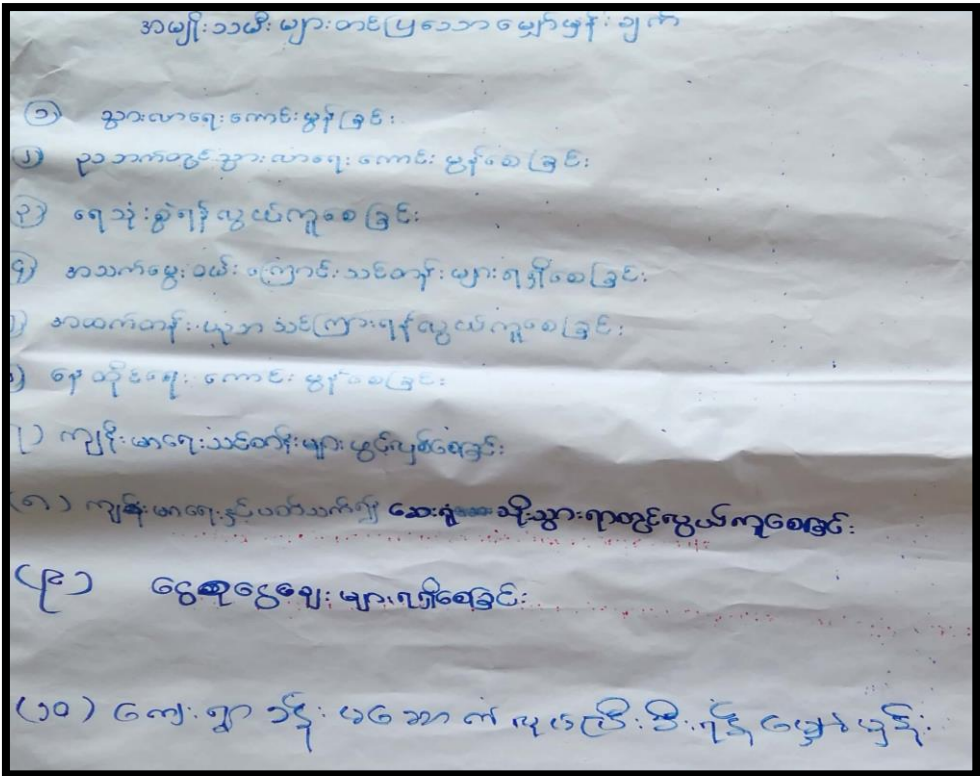 အမျိုးသမီးများတင်ပြသောမျှော်မှန်းချက်
၁) သွားလာရေးကောင်းမွန်ခြင်း
၂) ဥဒဘက်တွင်သွားလာရေးကောင်းမွန်စေခြင်း
၃) ရေသုံးစွဲရန်လွယ်ကူစေခြင်း
၄) အသက်မွေးဝမ်းကြောင်းသင်တန်းများရရှိစေခြင်း
အထက်တန်းပညာသင်ကြားရန်လွယ်ကူစေခြင်း
နေထိုင်ရေးကောင်းမွန်စေခြင်း
၇) ကျန်းမာရေးသင်တန်းများဖွင့်လှစ်စေခြင်း
(၈) ကျန်းမာရေးနှင့်ပတ်သက်၍ ဆေးရုံ သို့သွားရာတွင်လွယ်ကူစေခြင်း
(၉) ငွေစုငွေချေးများရရှိစေခြင်း
(၁၀) ကျေးရွာခန်းမဆောက်လုပ်ပြီးစီးရန်မျှော်မှန်း